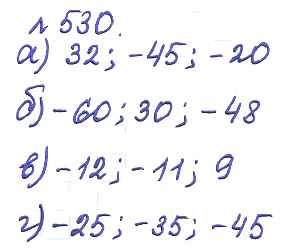 № 530.
а) 32; -45; -20
б) -60; 30; -48
в) -12; -11; 9
г) -25; -35; -45